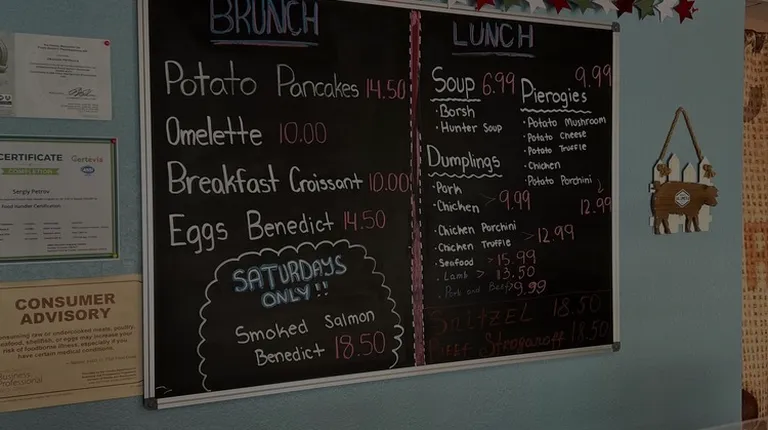 BRUNCH
Potato Pancakes 14.50
Omelette 10.00
Breakfast Croissant 10.00
Eggs Benedict 14.50
SATURDAYS
ONLY!!
Smoked Salmon
Benedict 18.50
LUNCH
Soup 6.99
· Borsh
· Hunter Soup
Dumplings
· Pork
· Chicken > 9.99
· Chicken Porchini
· Chicken Truffle > 12.99
· Seafood > 15.99
· Lamb > 13.50
· Pork and Beef > 9.99
9.99
Pierogies
· Potato Mushroom
· Potato Cheese
· Potato Truffle
· Chicken
· Potato Porchini
12.99
SnitzEL 18.50
Beef Stroganoff 18.50
CERTIFICATE
OF COMPLETION
Certevia
Sergiy Petrov
Food Handler Certification
CONSUMER
ADVISORY
consuming raw or undercooked meats, poultry,
seafood, shellfish, or eggs may increase your
risk of foodborne illness, especially if you
have certain medical conditions
Business
Professional